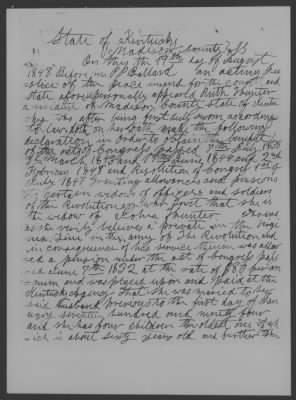 State of Kentucky
Madison County Sct
On this the 19th day of August
1848 Before me P P Ballard an acting Ju
stice of the peace in and for the county and
State aforesaid personally appeared Ruth Hunter
a resident of Madison County state of Kentu
cky who after being first duly sworn according
to law doth on her oath make the following
declaration in order to obtain the benefit
of the acts of Congress passed 7th July 1838
3d March 1843 and 17th June 1844 and 2nd
February 1848 and Resolution of Congress 1st of
July 1848 Granting allowances and pensions
to certain widows of officers and soldiers
of the Revolutionary War first that she is
the widow of John Hunter who was
as she verily believes a private in the Virgi
nia line in the army of the Revolution and
in consequence of his service therein was allow
ed a pension under the act of Congress pass
ed June 7th 1832 at the rate of $80 per an
num and was placed upon and paid at the
Kentucky agency That she was married to her
said husband previous to the first day of Jan
uary seventeen hundred and ninety four
and she has four children the oldest one of wh
ich is about sixty years old and further